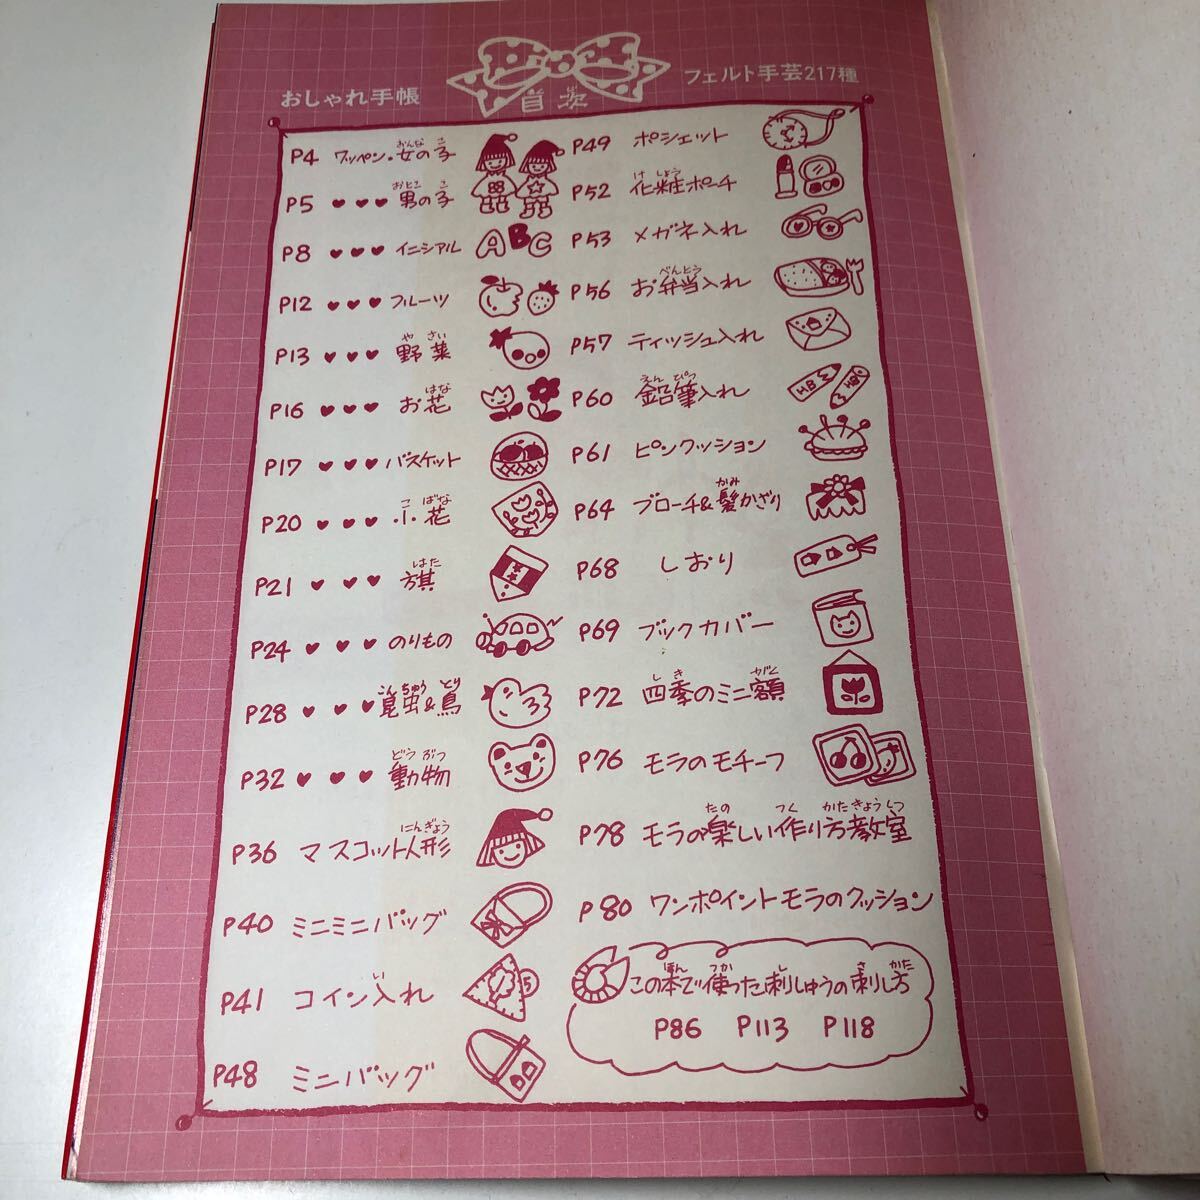 おしゃれ手帳
目次
フェルト手芸217種
P4 ワッペン・女の子
P5 ♥♥♥ 男の子
P8 ♥♥♥ イニシアル
ABC
P12 ♥♥♥ フルーツ
P13 ♥♥♥ 野菜
P16 ♥♥♥ お花
P17 ♥♥♥ バスケット
P20 ♥♥♥ 小花
P21 ♥♥♥ 旗
P24 ♥♥♥ のりもの
P28 ♥♥♥ 昆虫&鳥
P32 ♥♥♥ 動物
P36 マスコット人形
P40 ミニミニバッグ
P41 コイン入れ
5
P48 ミニバッグ
P49 ポシェット
P52 化粧ポーチ
P53 メガネ入れ
P56 お弁当入れ
P57 ティッシュ入れ
P60 鉛筆入れ
HB
HB
P61 ピンクッション
P64 ブローチ&髪かざり
P68 しおり
P69 ブックカバー
P72 四季のミニ額
P76 モラのモチーフ
P78 モラの楽しい作り方教室
P80 ワンポイントモラのクッション
この本で使った刺しゅうの刺し方
P86 P113 P118